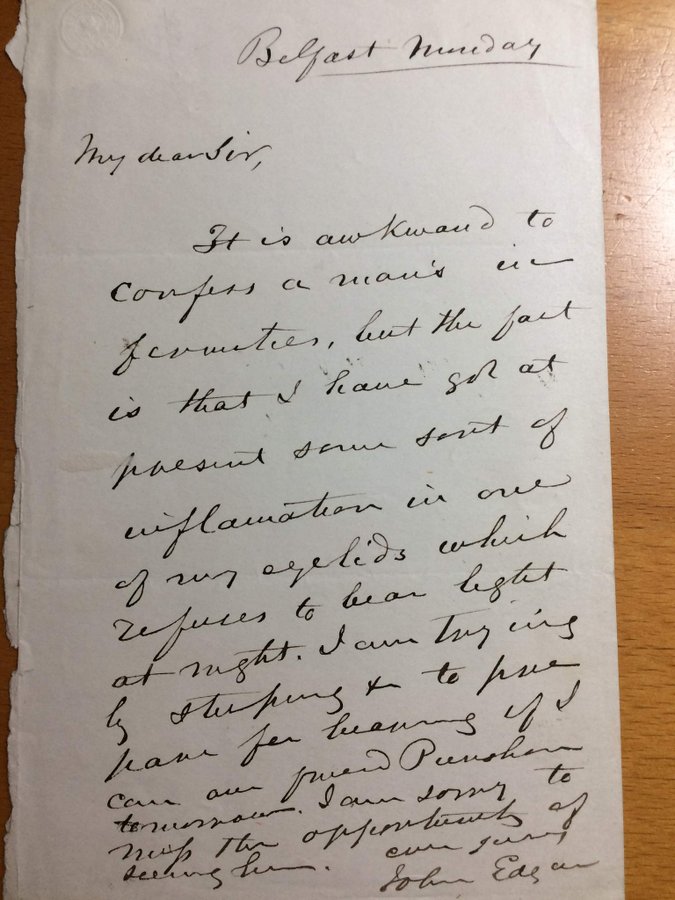 Belfast Monday
My dear Sir,
It is awkward to
confess a man's in
firmities, but the fact
is that I have got at
present some sort of
inflamation in one
of my eyelids which
refuses to bear light
at night. I am trying
by steeping & to pre
pare for hearing if I
can our friend Punshon
tomorrow. I am sorry to
miss the opportunity of
seeing him. ever yours
John Edgar